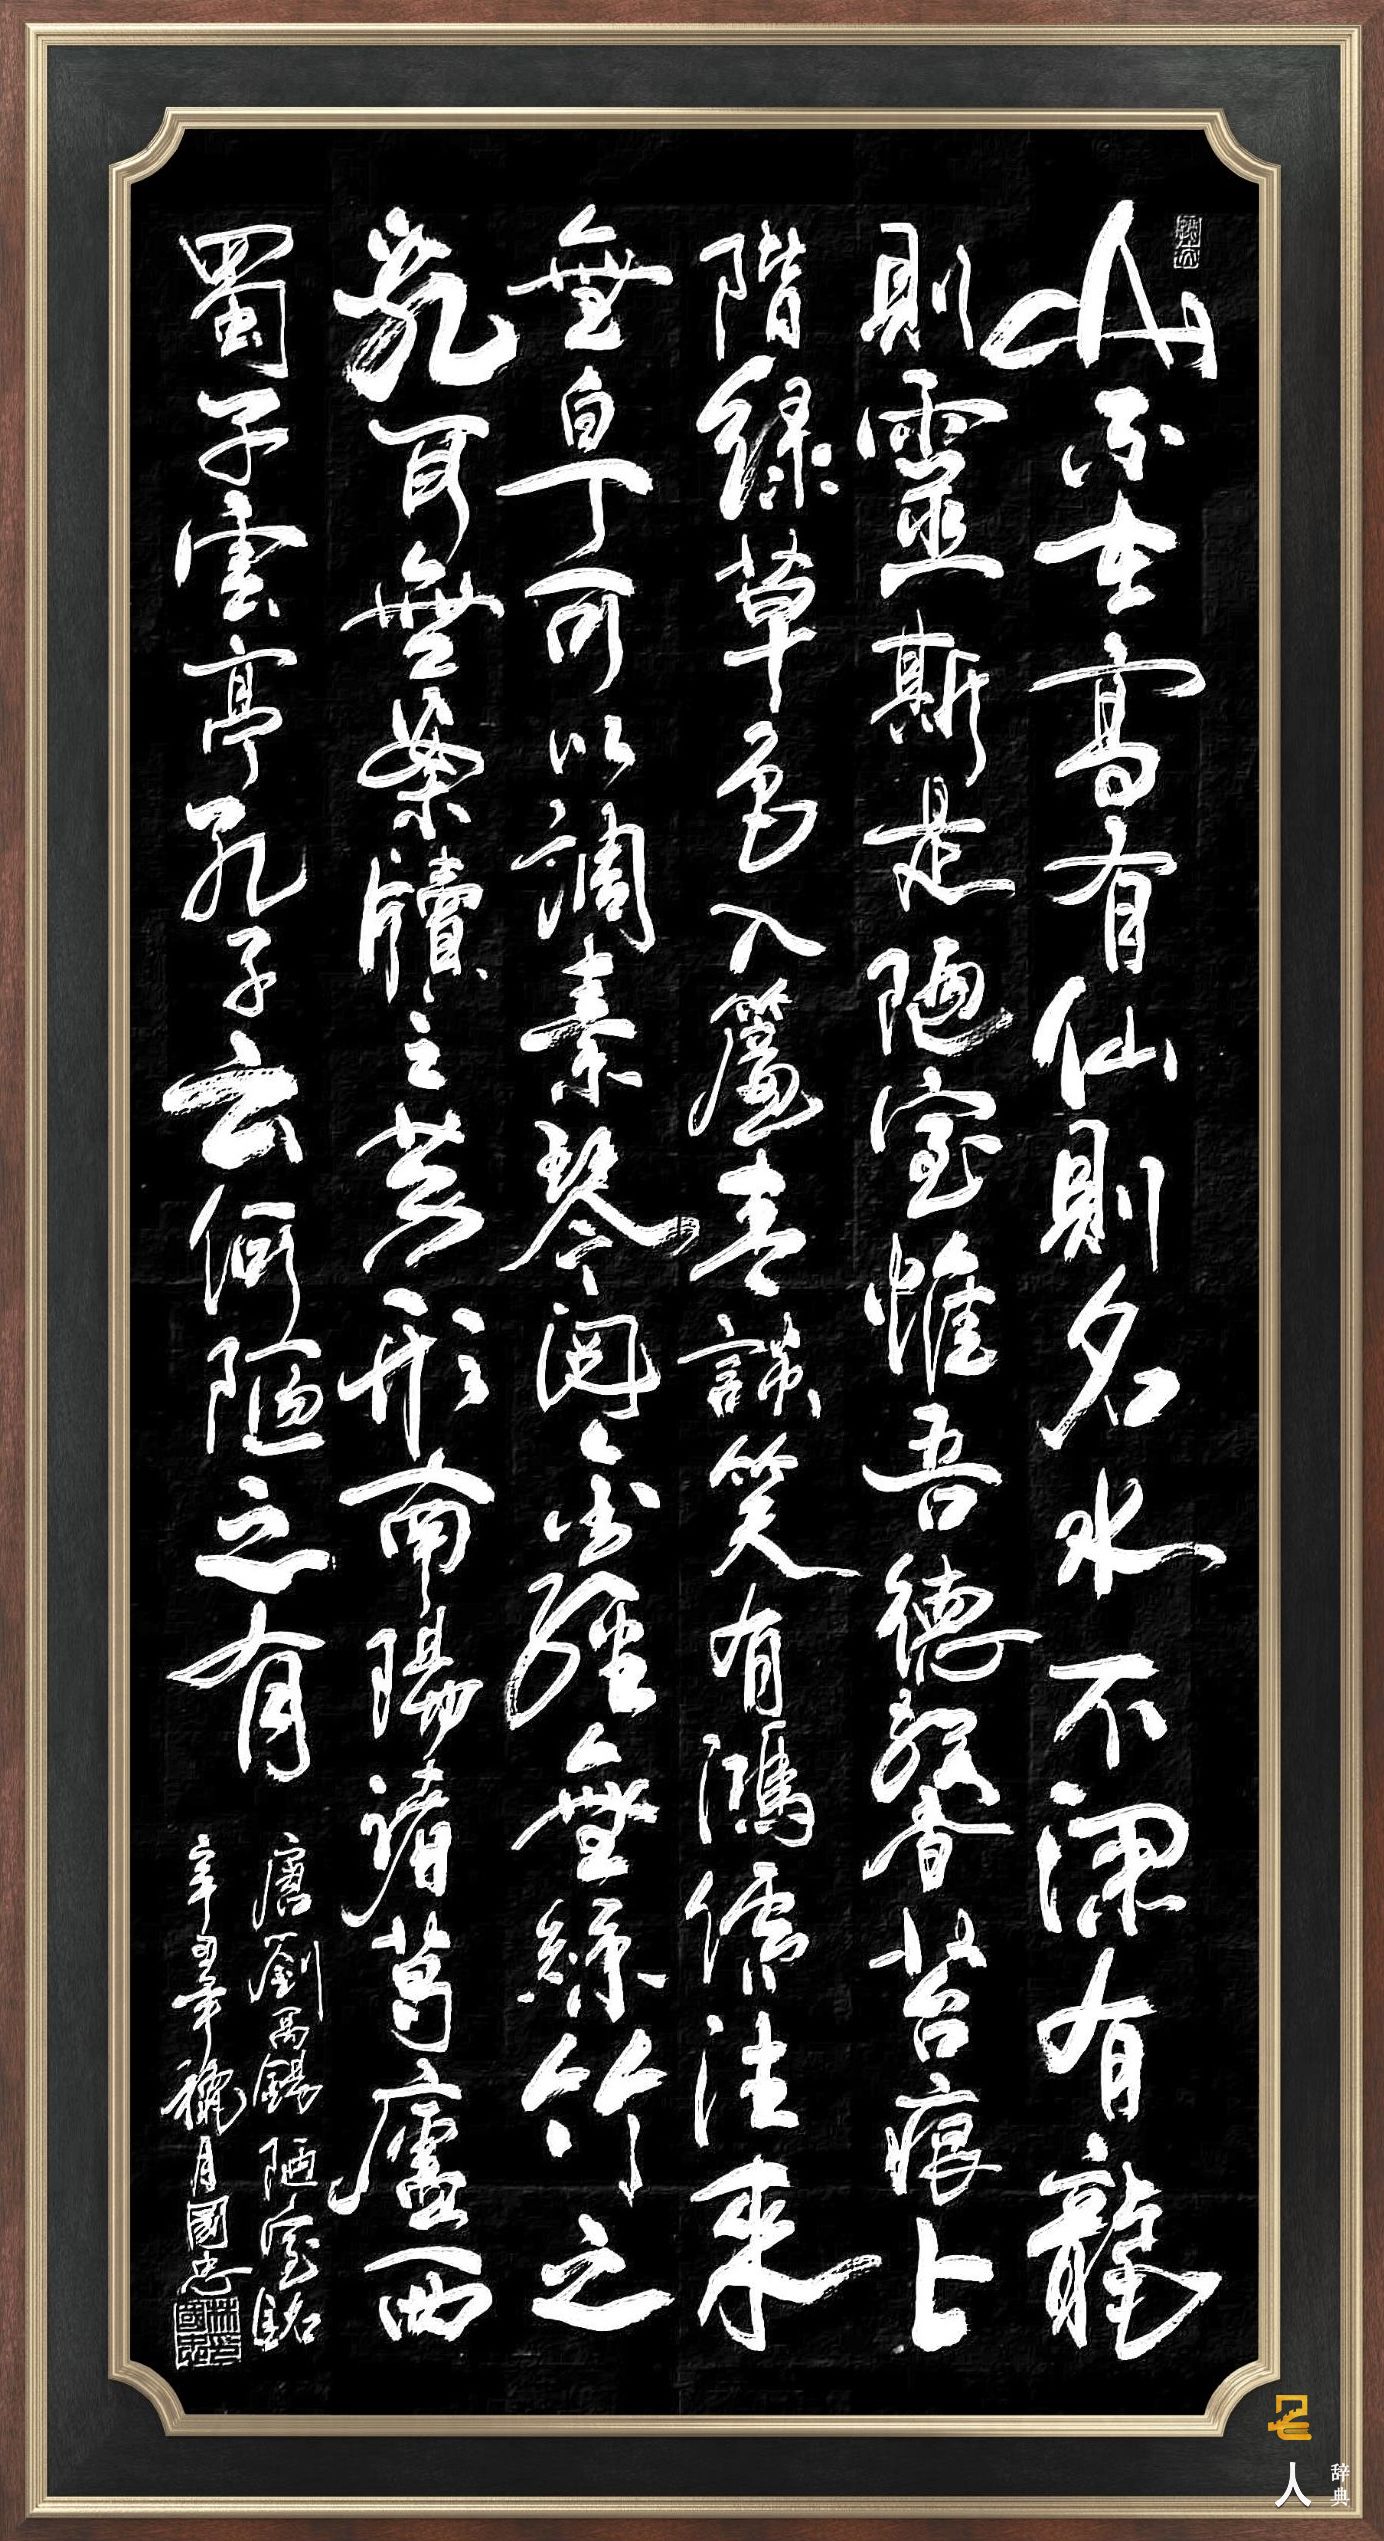 山不在高有仙則名水不深有龍
則靈斯是陋室惟吾德馨苔痕上
階綠草色入簾青談笑有鴻儒往來
無白丁可以調素琴閱金經無絲竹之
亂耳無案牘之勞形南陽諸葛廬西
蜀子雲亭孔子云何陋之有
唐劉禹錫陋室銘
辛丑年穐月國忠
林印國忠
名人辞典